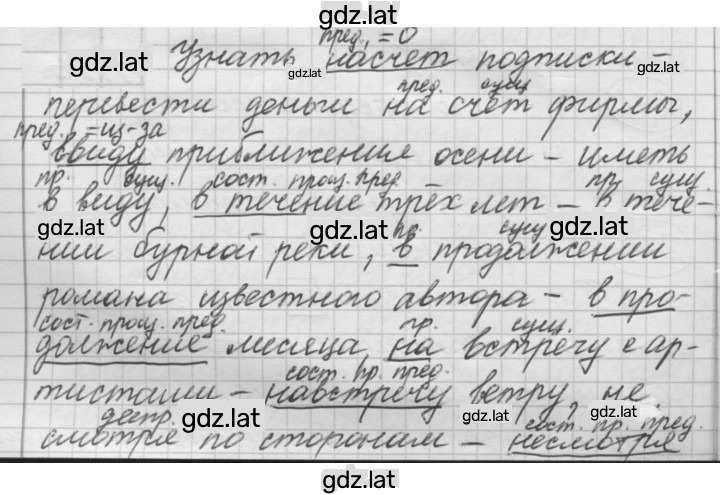 gdz.lat
пред. = о
gdz.lat Узнать насчет подписки –
gdz.lat gdz.lat
пред. сущ.
перевести деньги на счёт фирмы,
пред. = из-за
ввиду приближения осени – иметь
пр. сущ. сост. произ. пред. пр. сущ.
в виду, в течение трёх лет – в тече-
gdz.lat gdz.lat gdz.lat
пр. сущ.
нии бурной реки, в продолжении
романа известного автора – в про-
сост. произ. пред. пр. сущ.
должение месяца, на встречу с ар-
сост. пр. пред.
тистами – навстречу ветру, не
gdz.lat gdz.lat gdz.lat
деепр. сост. пр. пред.
смотря по сторонам – несмотря
gdz.lat